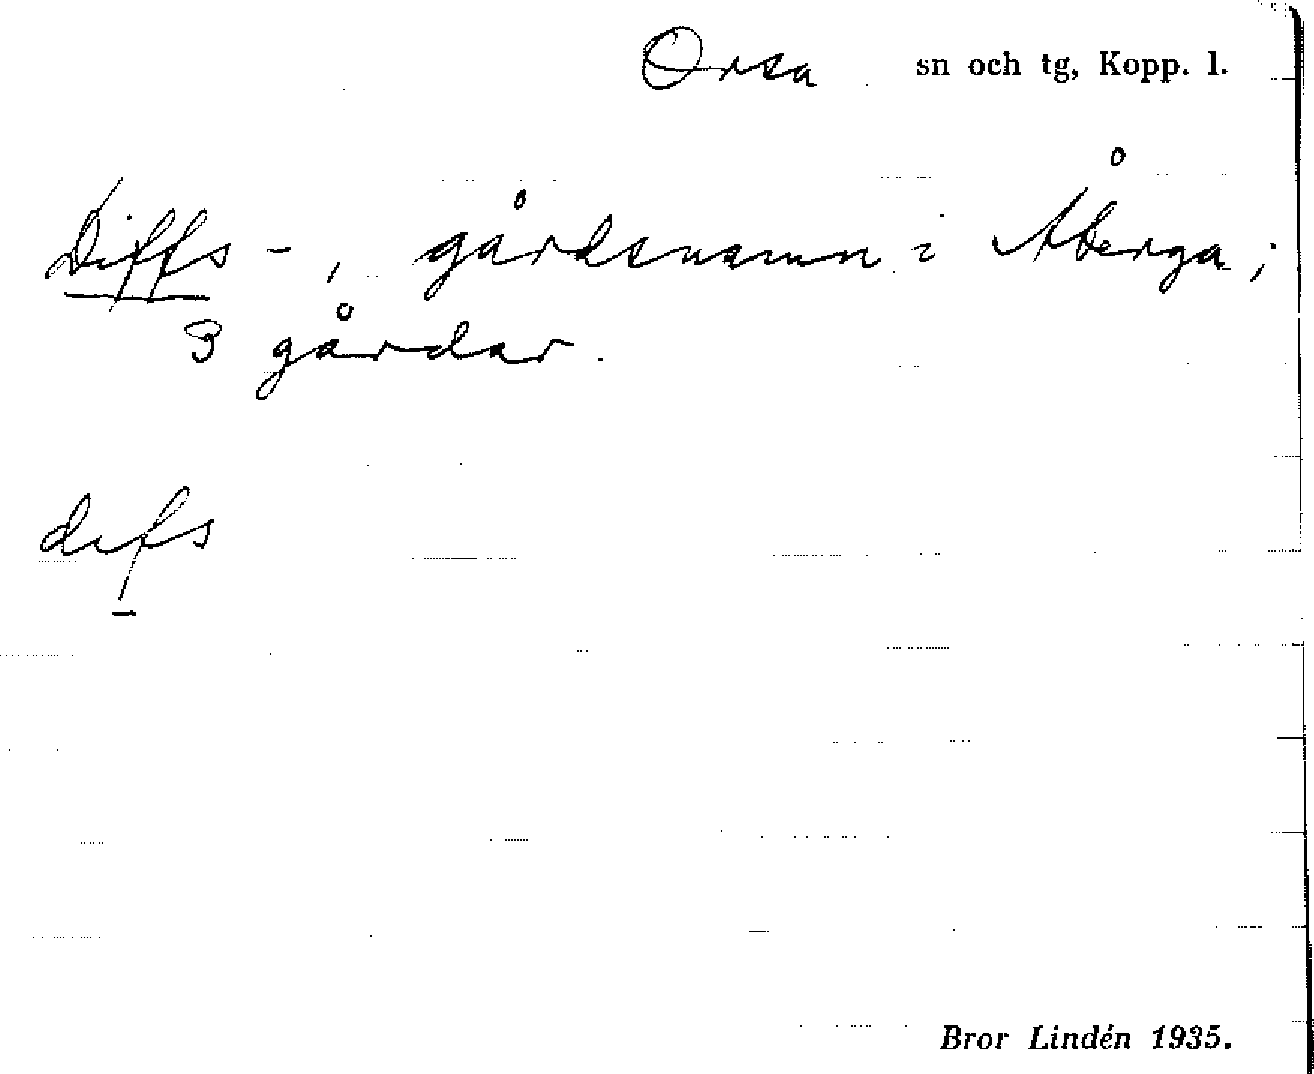 Orsa sn och tg, Kopp. l.
Diffs -, gårdsnamn i Åberga;
3 gårdar.
difs
Bror Lindén 1935.